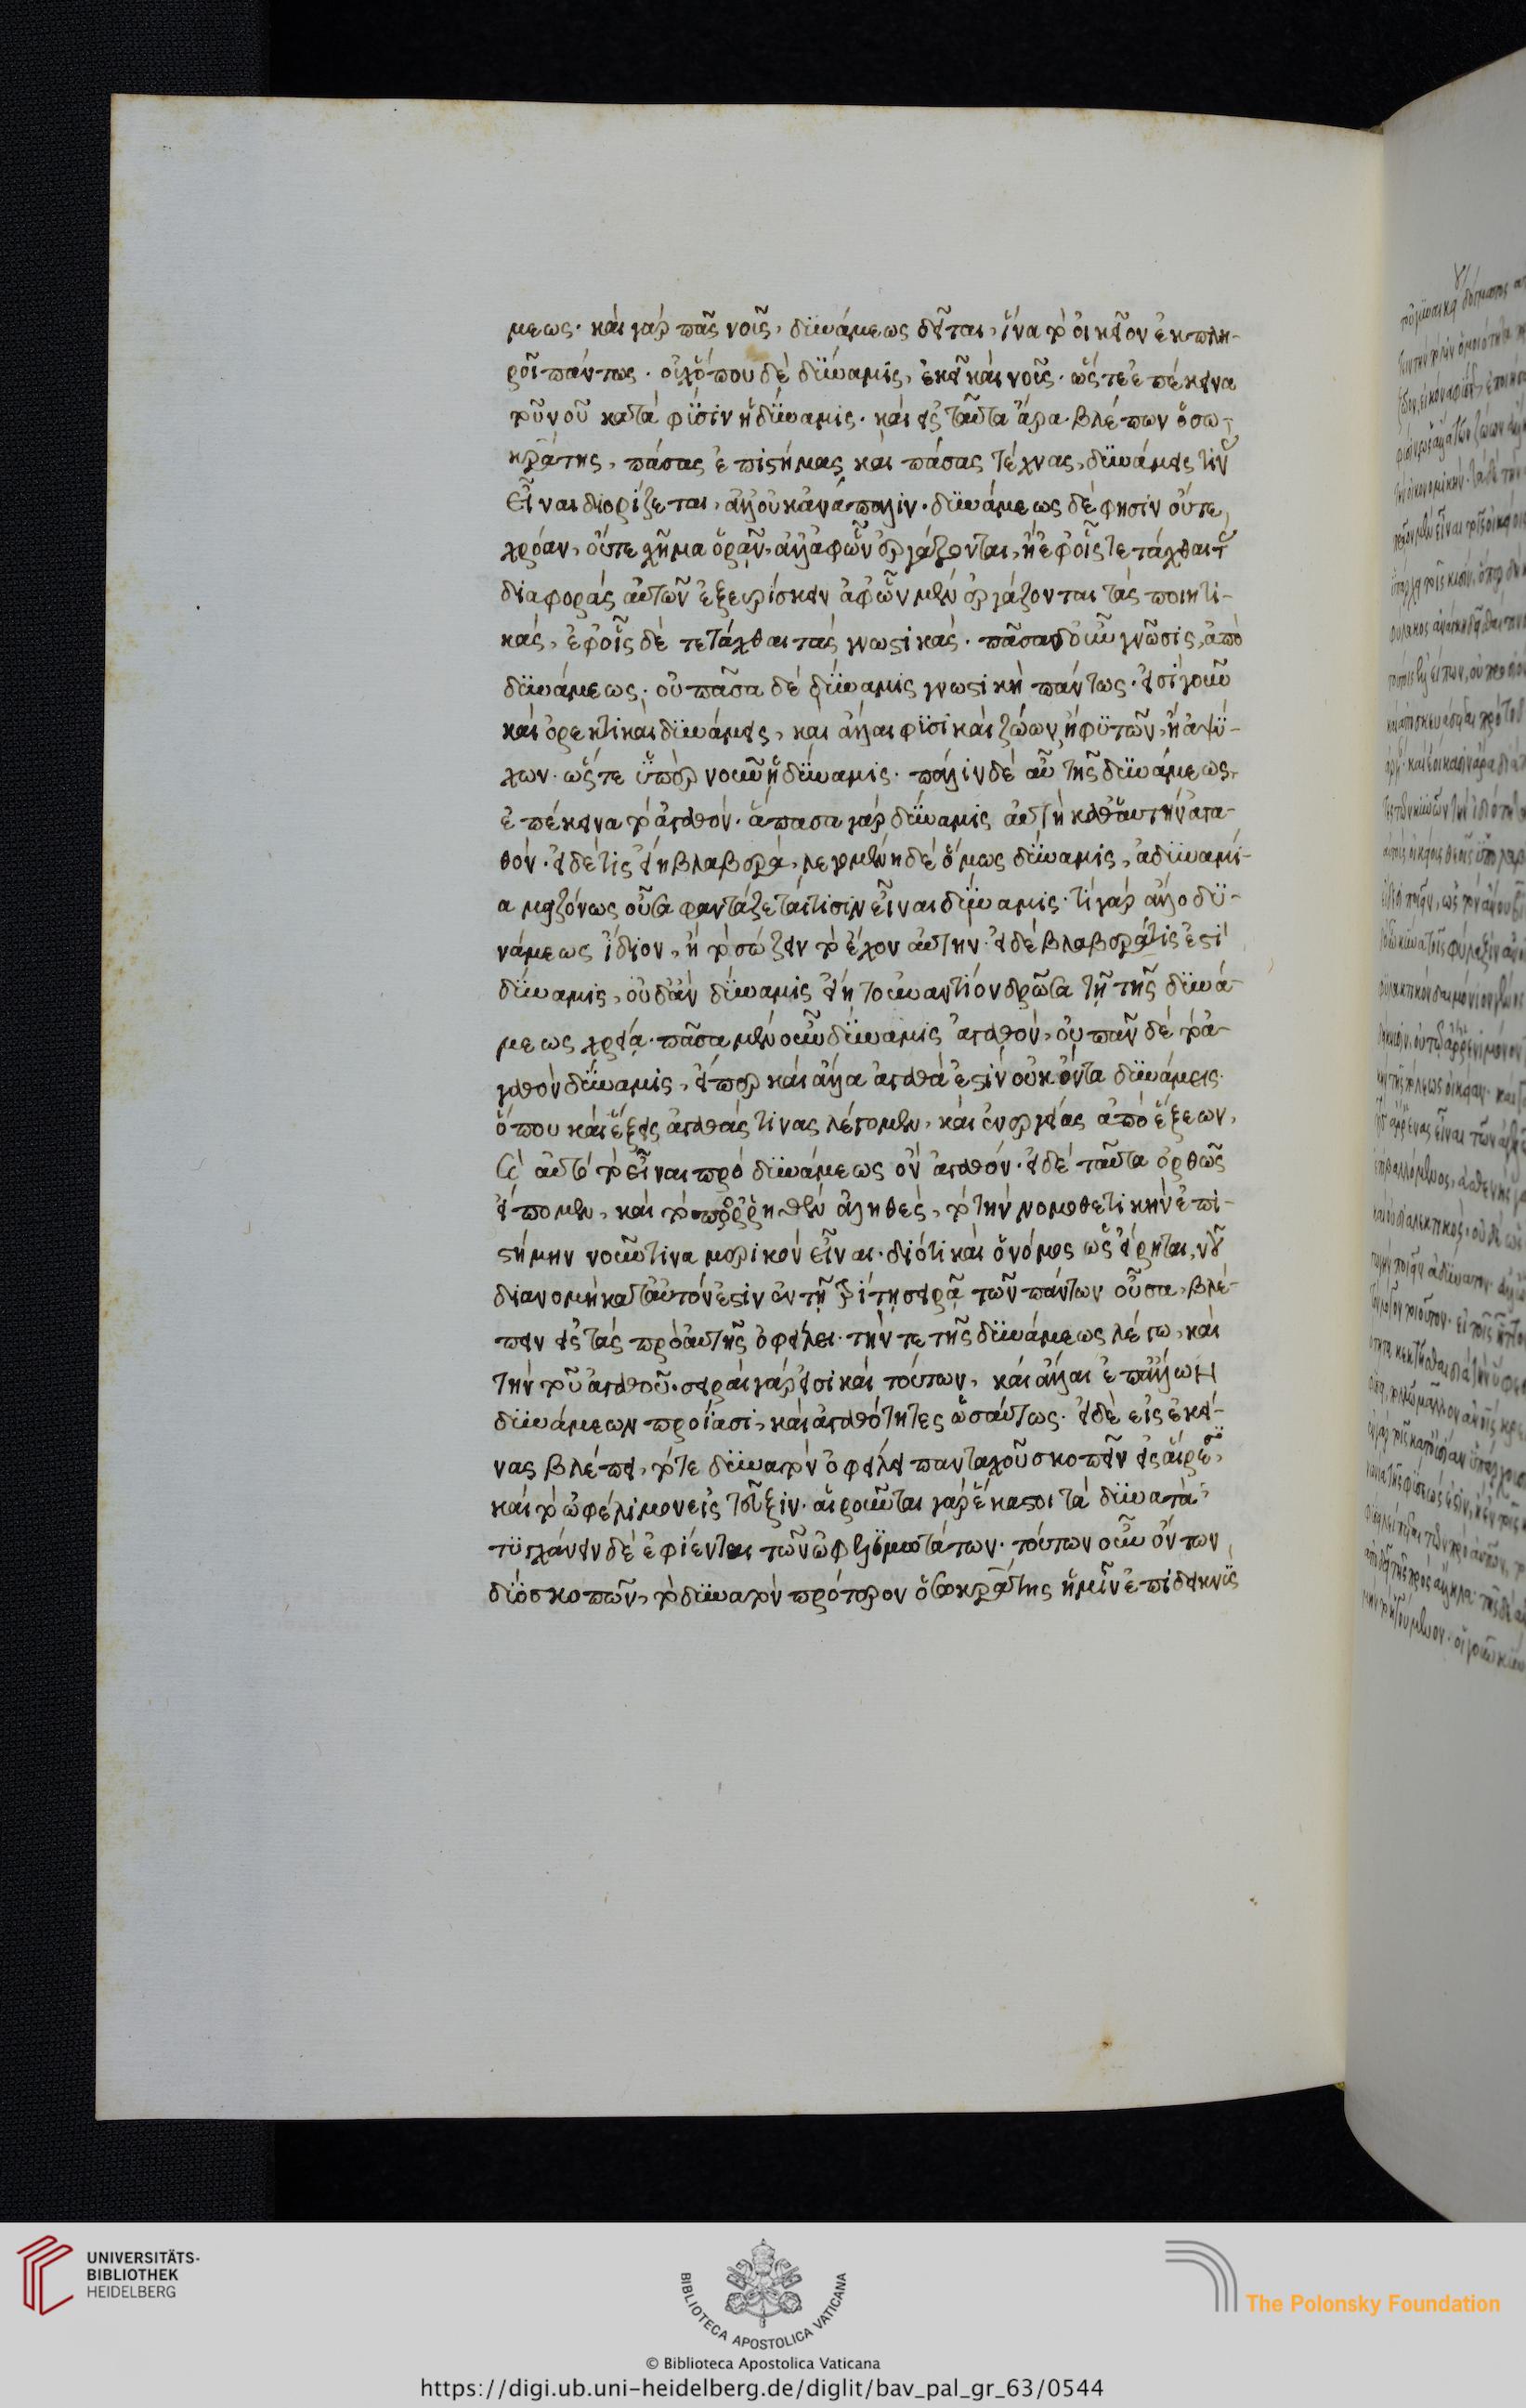 μεως· καὶ γὰρ πᾶς νοῦς, δυνάμεως δεῖται, ἵνα τὸ οἰκεῖον ἐκπλη-
ροῖ πάντως. οὐχ ὅπου δὲ δύναμις, ἐκεῖ καὶ νοῦς. ὥς τε ἐπέκεινα
τοῦ νοῦ κατὰ φύσιν ἡ δύναμις. καὶ εἰς ταῦτα ἄρα βλέπων ὁ σω-
κράτης, πάσας ἐπιστήμας καὶ πάσας τέχνας, δυνάμεις τιν
εἶναι διορίζεται, ἀλλ' οὐκ ἀνάπαλιν. δυνάμεως δέ φησιν οὔτε
χρόαν, οὔτε σχῆμα ὁρᾶν, ἀλλ' ἀφ' ὧν ἐργάζονται, ἢ ἐφ' οἷς τετάχθαι τ
διαφορὰς αὐτῶν ἐξευρίσκειν ἀφ' ὧν μὲν ἐργάζονται τὰς ποιητι-
κάς, ἐφ' οἷς δὲ τετάχθαι τὰς γνωστικάς. πᾶσα δ' οὖν γνῶσις, ἀπὸ
δυνάμεως. οὐ πᾶσα δὲ δύναμις γνωστικὴ πάντως. εἰσὶ γοῦν
καὶ ὀρεκτικαὶ δυνάμεις, καὶ ἄλλαι φυσικαὶ ζώων, ἢ φυτῶν, ἢ ἀψύ-
χων. ὥς τε ὑπὲρ νοῦν ἡ δύναμις. πάλιν δὲ αὖ τῆς δυνάμεως
ἐπέκεινα τὸ ἀγαθόν. ἅπασα γὰρ δύναμις αὐτὴ καθ' αὑτὴν ἀγα-
θόν. εἰ δέ τις εἴη βλαβερά, λεγομένη δὲ ὅμως δύναμις, ἀδυναμί-
α μειζόνως οὖσα φαντάζεταί τισιν εἶναι δύναμις. τί γὰρ ἄλλο δυ-
νάμεως ἴδιον, ἢ τὸ σώζειν τὸ ἔχον αὐτήν. εἰ δὲ βλαβερά τίς ἐστι
δύναμις, οὐδ' ἂν δύναμις εἴη τοὐναντίον δρῶσα τῇ τῆς δυνά-
μεως χρείᾳ. πᾶσα μὲν οὖν δύναμις ἀγαθόν, οὐ πᾶν δὲ τὸ ἀ-
γαθὸν δύναμις, εἴπερ καὶ ἄλλα ἀγαθά ἐστιν οὐκ ὄντα δυνάμεις.
ὅπου καὶ ἕξεις ἀγαθάς τινας λέγομεν, καὶ ἐνεργείας ἀπὸ ἕξεων,
καὶ αὐτὸ τὸ εἶναι πρὸ δυνάμεως ὂν ἀγαθόν. εἰ δὲ ταῦτα ὀρθῶς
εἴπομεν, καὶ τὸ προρρηθὲν ἀληθές, τὸ τὴν νομοθετικὴν ἐπι-
στήμην νοῦν τινα μερικὸν εἶναι. διότι καὶ ὁ νόμος ὡς εἴρηται, νοῦ
διανομή κατ' αὐτόν ἐστιν ἐν τῇ τρίτῃ σειρᾷ τῶν πάντων οὖσα, βλέ-
πειν εἰς τὰς πρὸ αὐτῆς ὀφείλει. τήν τε τῆς δυνάμεως λέγω, καὶ
τὴν τοῦ ἀγαθοῦ. σειραὶ γάρ εἰσι καὶ τούτων, καὶ ἄλλαι ἐπ' ἄλλων
δυνάμεων προΐασι, καὶ ἀγαθότητες ὡσαύτως. εἰ δὲ εἰς ἐκεί-
νας βλέπει, τό τε δυνατὸν ὀφείλει πανταχοῦ σκοπεῖν εἰς
καὶ τὸ ὠφέλιμον εἰς τεῦξιν. αἱροῦνται γὰρ ἕκαστοι τὰ δυνατά
τυγχάνειν δὲ ἐφίενται τῶν ὠφελιμωτάτων. τούτων οὖν ὄντων
δύο σκοπῶν, τὸ δυνατὸν πρότερον ὁ σωκράτης ἡμῖν ἐπιδεικνὺς
UNIVERSITÄTS-
BIBLIOTHEK
HEIDELBERG
BIBLIOTECA APOSTOLICA VATICANA
The Polonsky Foundation
© Biblioteca Apostolica Vaticana
https://digi.ub.uni-heidelberg.de/diglit/bav_pal_gr_63/0544